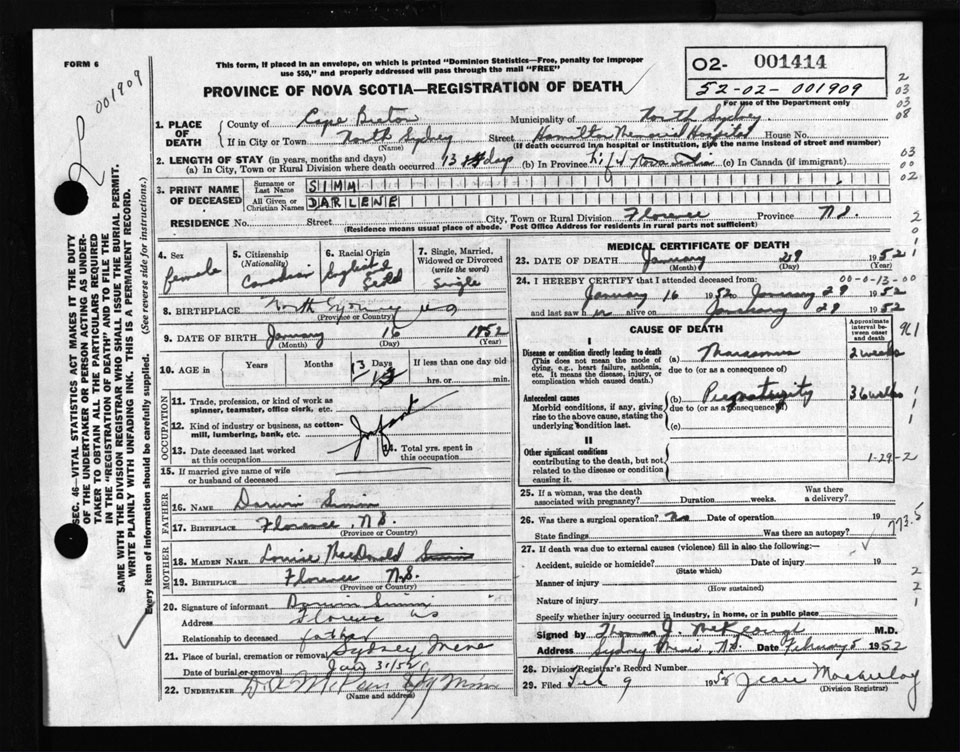 FORM 6
This form, if placed in an envelope, on which is printed "Dominion Statistics—Free, penalty for improper
use $50," and properly addressed will pass through the mail "FREE"
PROVINCE OF NOVA SCOTIA—REGISTRATION OF DEATH
02- 001414
52-02- 001909
For use of the Department only
2- 001909
SEC. 46—VITAL STATISTICS ACT MAKES IT THE DUTY
OF THE UNDERTAKER OR PERSON ACTING AS UNDER-
TAKER TO OBTAIN ALL THE PARTICULARS REQUIRED
IN THE "REGISTRATION OF DEATH" AND TO FILE THE
SAME WITH THE DIVISION REGISTRAR WHO SHALL ISSUE THE BURIAL PERMIT.
WRITE PLAINLY WITH UNFADING INK. THIS IS A PERMANENT RECORD.
Every item of information should be carefully supplied. (See reverse side for instructions.)
1. PLACE OF DEATH County of Cape Breton Municipality of North Sydney
If in City or Town North Sydney Street Hamilton Memorial Hospital House No.
(Name) (If death occurred in a hospital or institution, give the name instead of street and number)
2. LENGTH OF STAY (in years, months and days)
(a) In City, Town or Rural Division where death occurred 13 days (b) In Province life Nova Scotia (c) In Canada (if immigrant)
3. PRINT NAME OF DECEASED Surname or Last Name SIMM
All Given or Christian Names DARLENE
RESIDENCE No. Street City, Town or Rural Division Florence Province N.S.
(Residence means usual place of abode. Post Office Address for residents in rural parts not sufficient)
4. Sex female
5. Citizenship (Nationality) Canadian
6. Racial Origin English &
7. Single, Married, Widowed or Divorced (write the word) Single
8. BIRTHPLACE North Sydney N.S.
(Province or Country)
9. DATE OF BIRTH January 16 1952
(Month) (Day) (Year)
10. AGE in Years Months Days 13 If less than one day old hrs. or min.
OCCUPATION
11. Trade, profession, or kind of work as spinner, teamster, office clerk, etc.
12. Kind of industry or business, as cotton-mill, lumbering, bank, etc. Infant
13. Date deceased last worked at this occupation
14. Total yrs. spent in this occupation
15. If married give name of wife or husband of deceased
FATHER
16. NAME Darwin Simm
17. BIRTHPLACE Florence, N.S.
(Province or Country)
MOTHER
18. MAIDEN NAME Louise MacDonald Simm
19. BIRTHPLACE Florence N.S.
(Province or Country)
20. Signature of informant Darwin Simm
Address Florence NS
Relationship to deceased father
21. Place of burial, cremation or removal Sydney Mine
Date of burial or removal Jan 31/52
22. UNDERTAKER
(Name and address)
MEDICAL CERTIFICATE OF DEATH
23. DATE OF DEATH January 29 1952
(Month) (Day) (Year)
24. I HEREBY CERTIFY that I attended deceased from: 00-0-13-00
January 16 1952 to January 29 1952
and last saw her alive on January 29 1952
CAUSE OF DEATH
Approximate interval between onset and death
I
Disease or condition directly leading to death (a) Marasmus 2 weeks
(This does not mean the mode of dying, e.g., heart failure, asthenia, etc. It means the disease, injury, or complication which caused death.)
due to (or as a consequence of)
Antecedent causes (b) Prematurity 36 weeks
Morbid conditions, if any, giving rise to the above cause, stating the underlying condition last.
due to (or as a consequence of)
(c)
II
Other significant conditions
contributing to the death, but not related to the disease or condition causing it.
1-29-2
25. If a woman, was the death associated with pregnancy? Duration weeks. Was there a delivery?
26. Was there a surgical operation? no Date of operation 19
State findings Was there an autopsy?
773.5
27. If death was due to external causes (violence) fill in also the following:—
Accident, suicide or homicide? Date of injury 19
(State which)
Manner of injury
(How sustained)
Nature of injury
Specify whether injury occurred in industry, in home, or in public place
Signed by Thomas J. McKeough M.D.
Address Sydney Mines, N.S. Date February 5 1952
28. Division Registrar's Record Number
29. Filed Feb 9 1952 Jean Macaulay
(Division Registrar)